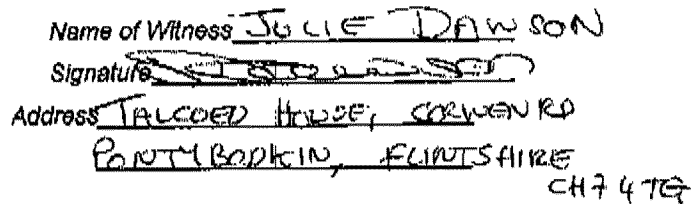 Name of Witness JULIE DAWSON
Signature
Address TALCOED HOUSE, CORWEN RD
PONTYBODKIN, FLINTSHIRE
CH7 4TG